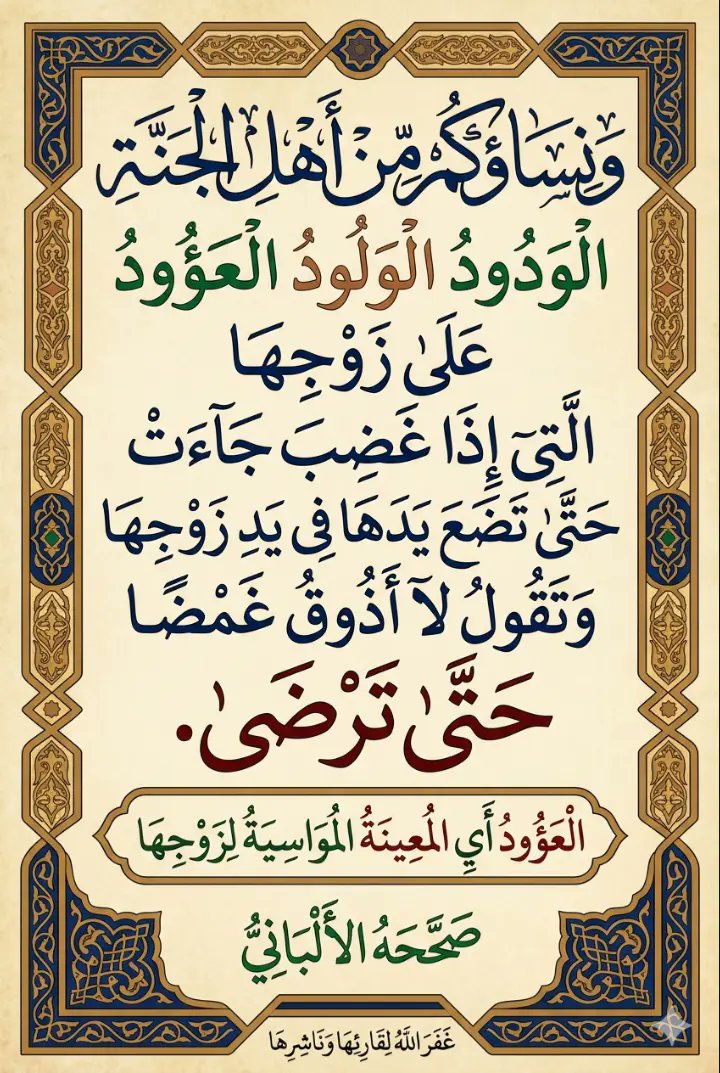 وَنِسَاؤُكُمْ مِّنْ أَهْلِ الْجَنَّةِ
الْوَدُودُ الْوَلُودُ الْعَؤُودُ
عَلَىٰ زَوْجِهَا
الَّتِىٓ إِذَا غَضِبَ جَآءَتْ
حَتَّىٰ تَضَعَ يَدَهَا فِى يَدِ زَوْجِهَا
وَتَقُولُ لَآ أَذُوقُ غَمْضًا
حَتَّىٰ تَرْضَىٰ.
الْعَؤُودُ أَيِ الْمُعِينَةُ الْمُوَاسِيَةُ لِزَوْجِهَا
صَحَّحَهُ الأَلْبَانِيُّ
غَفَرَ اللَّهُ لِقَارِئِهَا وَنَاشِرِهَا